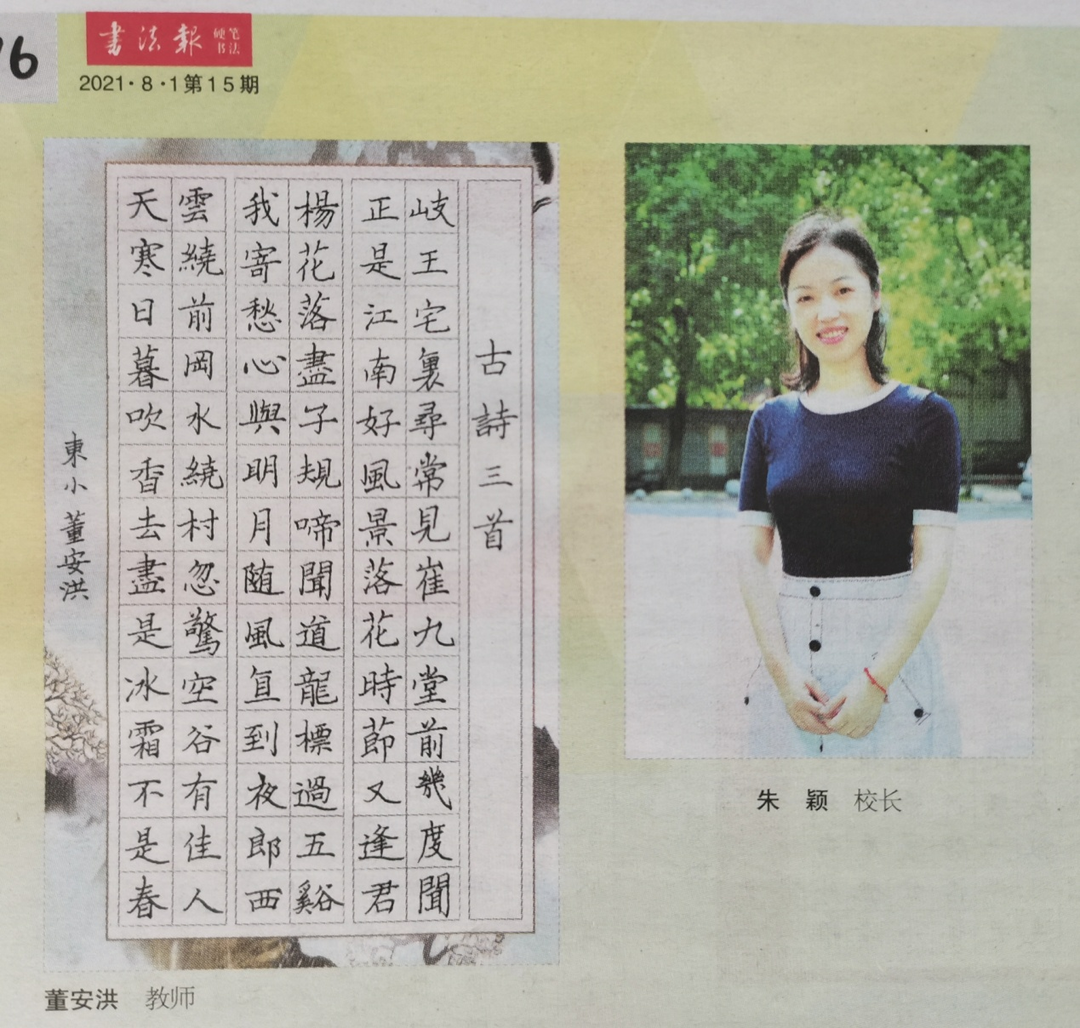 16
书法报 硬笔书法
2021·8·1第15期
古詩三首
岐王宅裏尋常見崔九堂前幾度聞
正是江南好風景落花時節又逢君
楊花落盡子規啼聞道龍標過五谿
我寄愁心與明月随風直到夜郎西
雲繞前岡水繞村忽驚空谷有佳人
天寒日暮吹香去盡是冰霜不是春
東小董安洪
董安洪 教师
朱颖 校长